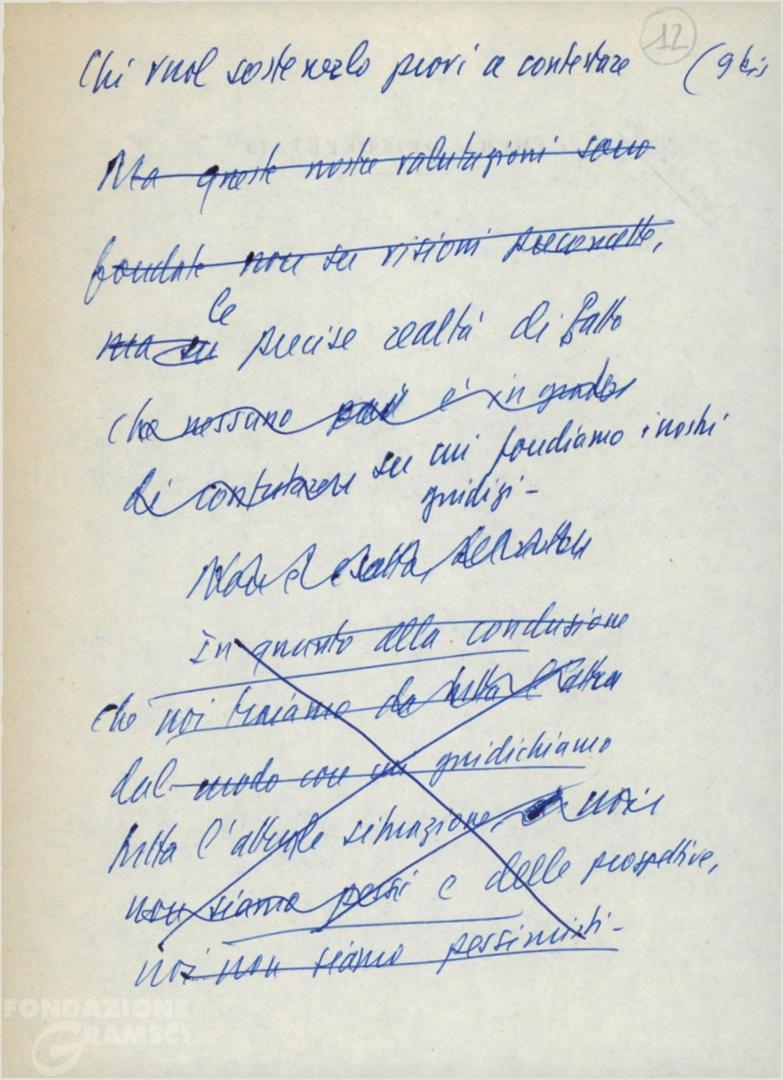 12
Chi vuol sostenerlo provi a contestare (9 bis
Ma queste nostre valutazioni sono
fondate non su visioni preconcette,
le
ma su precise realtà di fatto
che nessuno può è in grado
di contestare su cui fondiamo i nostri
giudizi -
In quanto alla conclusione
che noi traiamo da tutta l'altra
dal modo con cui giudichiamo
tutta l'attuale situazione, noi
non siamo pessi e delle prospettive,
noi non siamo pessimisti -
FONDAZIONE
GRAMSCI